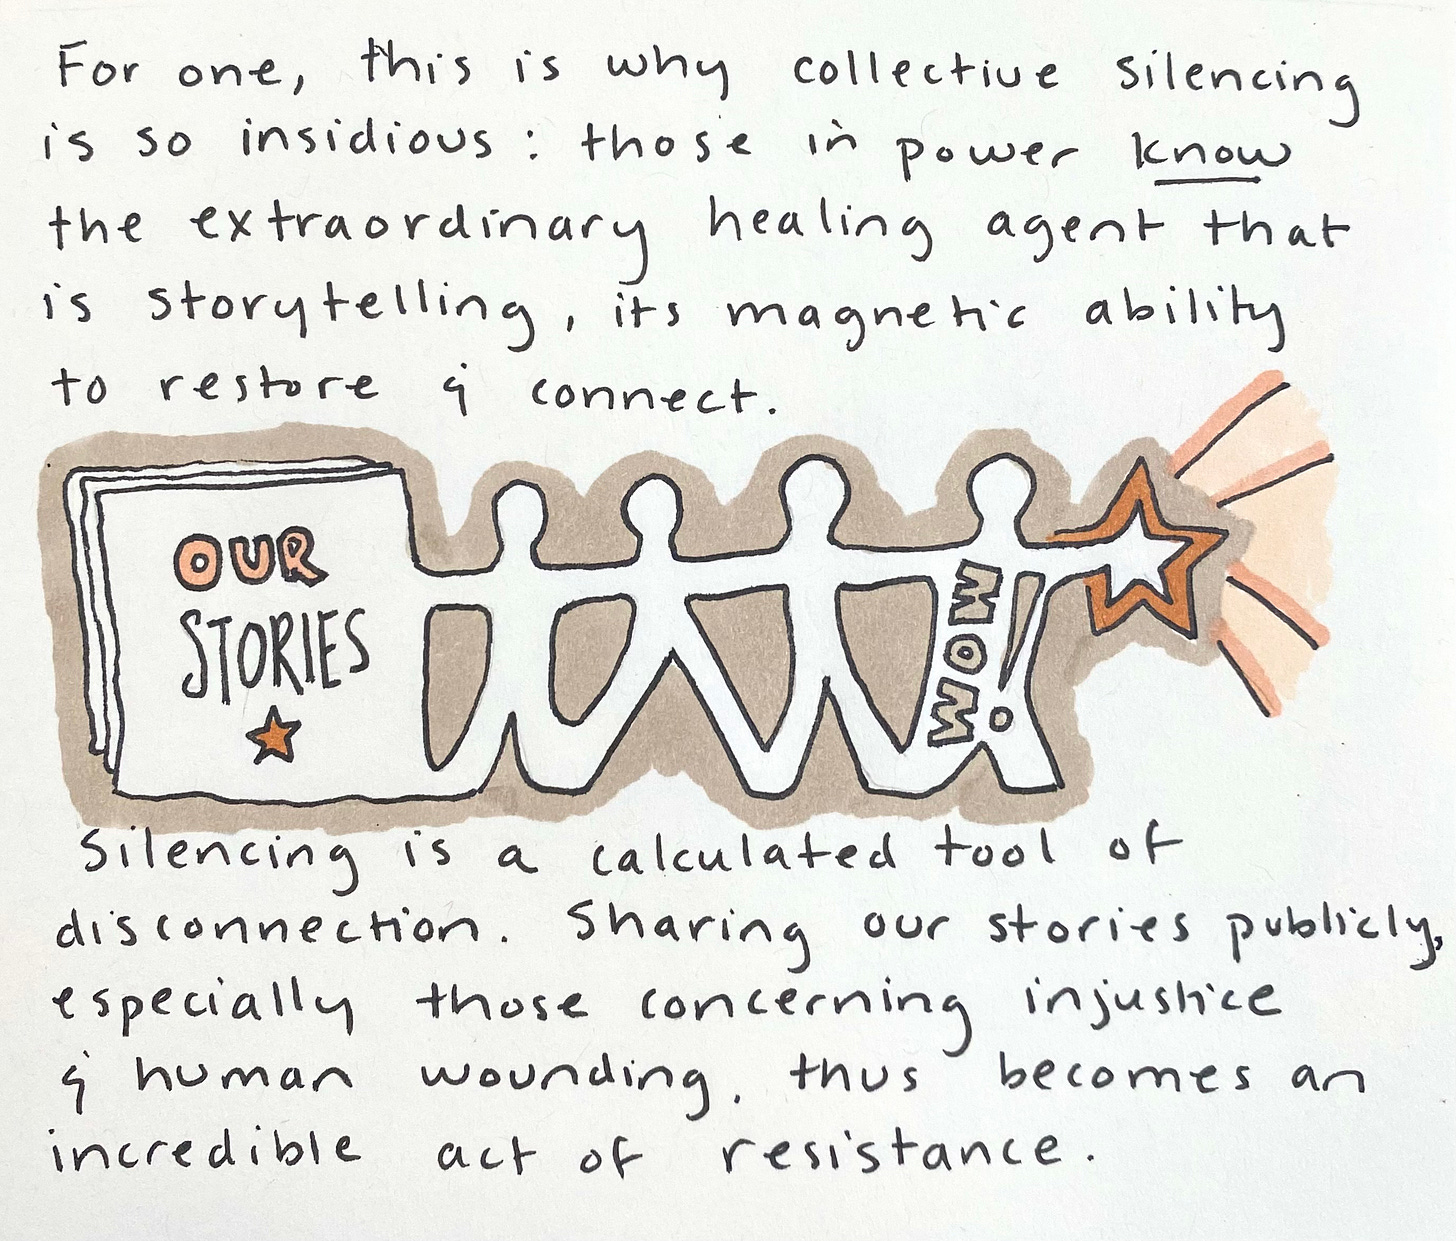 For one, this is why collective silencing
is so insidious: those in power know
the extraordinary healing agent that
is storytelling, its magnetic ability
to restore & connect.
OUR
STORIES
WOW!
Silencing is a calculated tool of
disconnection. Sharing our stories publicly,
especially those concerning injustice
& human wounding, thus becomes an
incredible act of resistance.